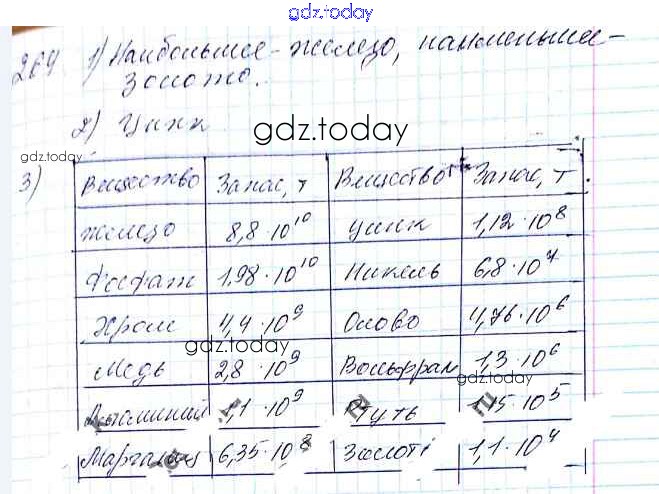 gdz.today
269 1) Наибольшее - железо, наименьшее -
золото.
2) Цинк
gdz.today
gdz.today
3)
Вещество Запас, т Вещество Запас, т
железо 8,8·10¹⁰ цинк 1,12·10⁸
Фосфат 1,98·10¹⁰ Никель 6,8·10⁷
Хром 4,4·10⁹ Олово 4,76·10⁶
gdz.today
Медь 2,8·10⁹ Вольфрам 1,3·10⁶
gdz.today
Алюминий 1,1·10⁹ Ртуть 1,15·10⁵
Марганец 6,35·10⁸ Золото 1,1·10⁴